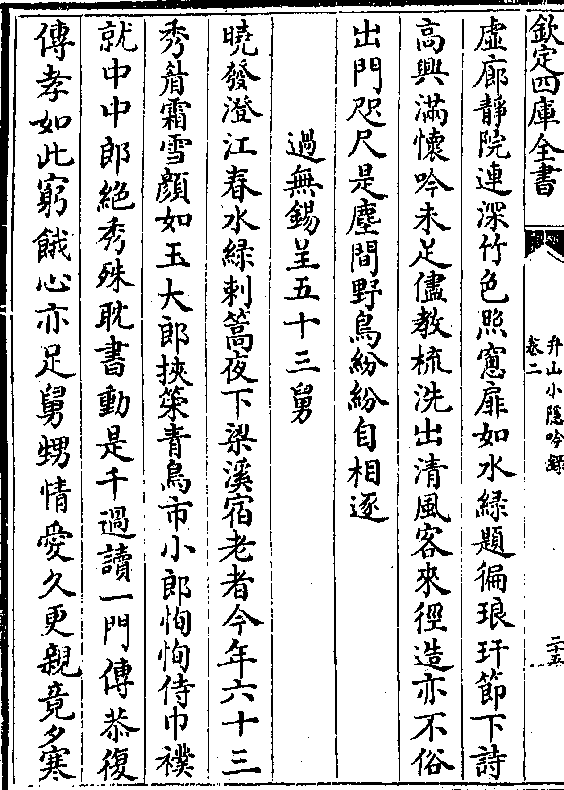 欽定四庫全書
弁山小隱吟錄
卷二
二十五
虛廊靜院連深竹色照窻扉如水緑題徧琅玕節下詩
高興滿懷吟未足儘教梳洗出清風客來徑造亦不俗
出門咫尺是塵間野鳥紛紛自相逐
過無錫呈五十三舅
曉發澄江春水緑刺篙夜下梁溪宿老者今年六十三
秀眉霜雪顔如玉大郎挾策青烏市小郎恂恂侍巾襆
就中中郎絶秀殊耽書動是千過讀一門傳恭復
傳孝如此窮餓心亦足舅甥情愛久更親竟夕寒